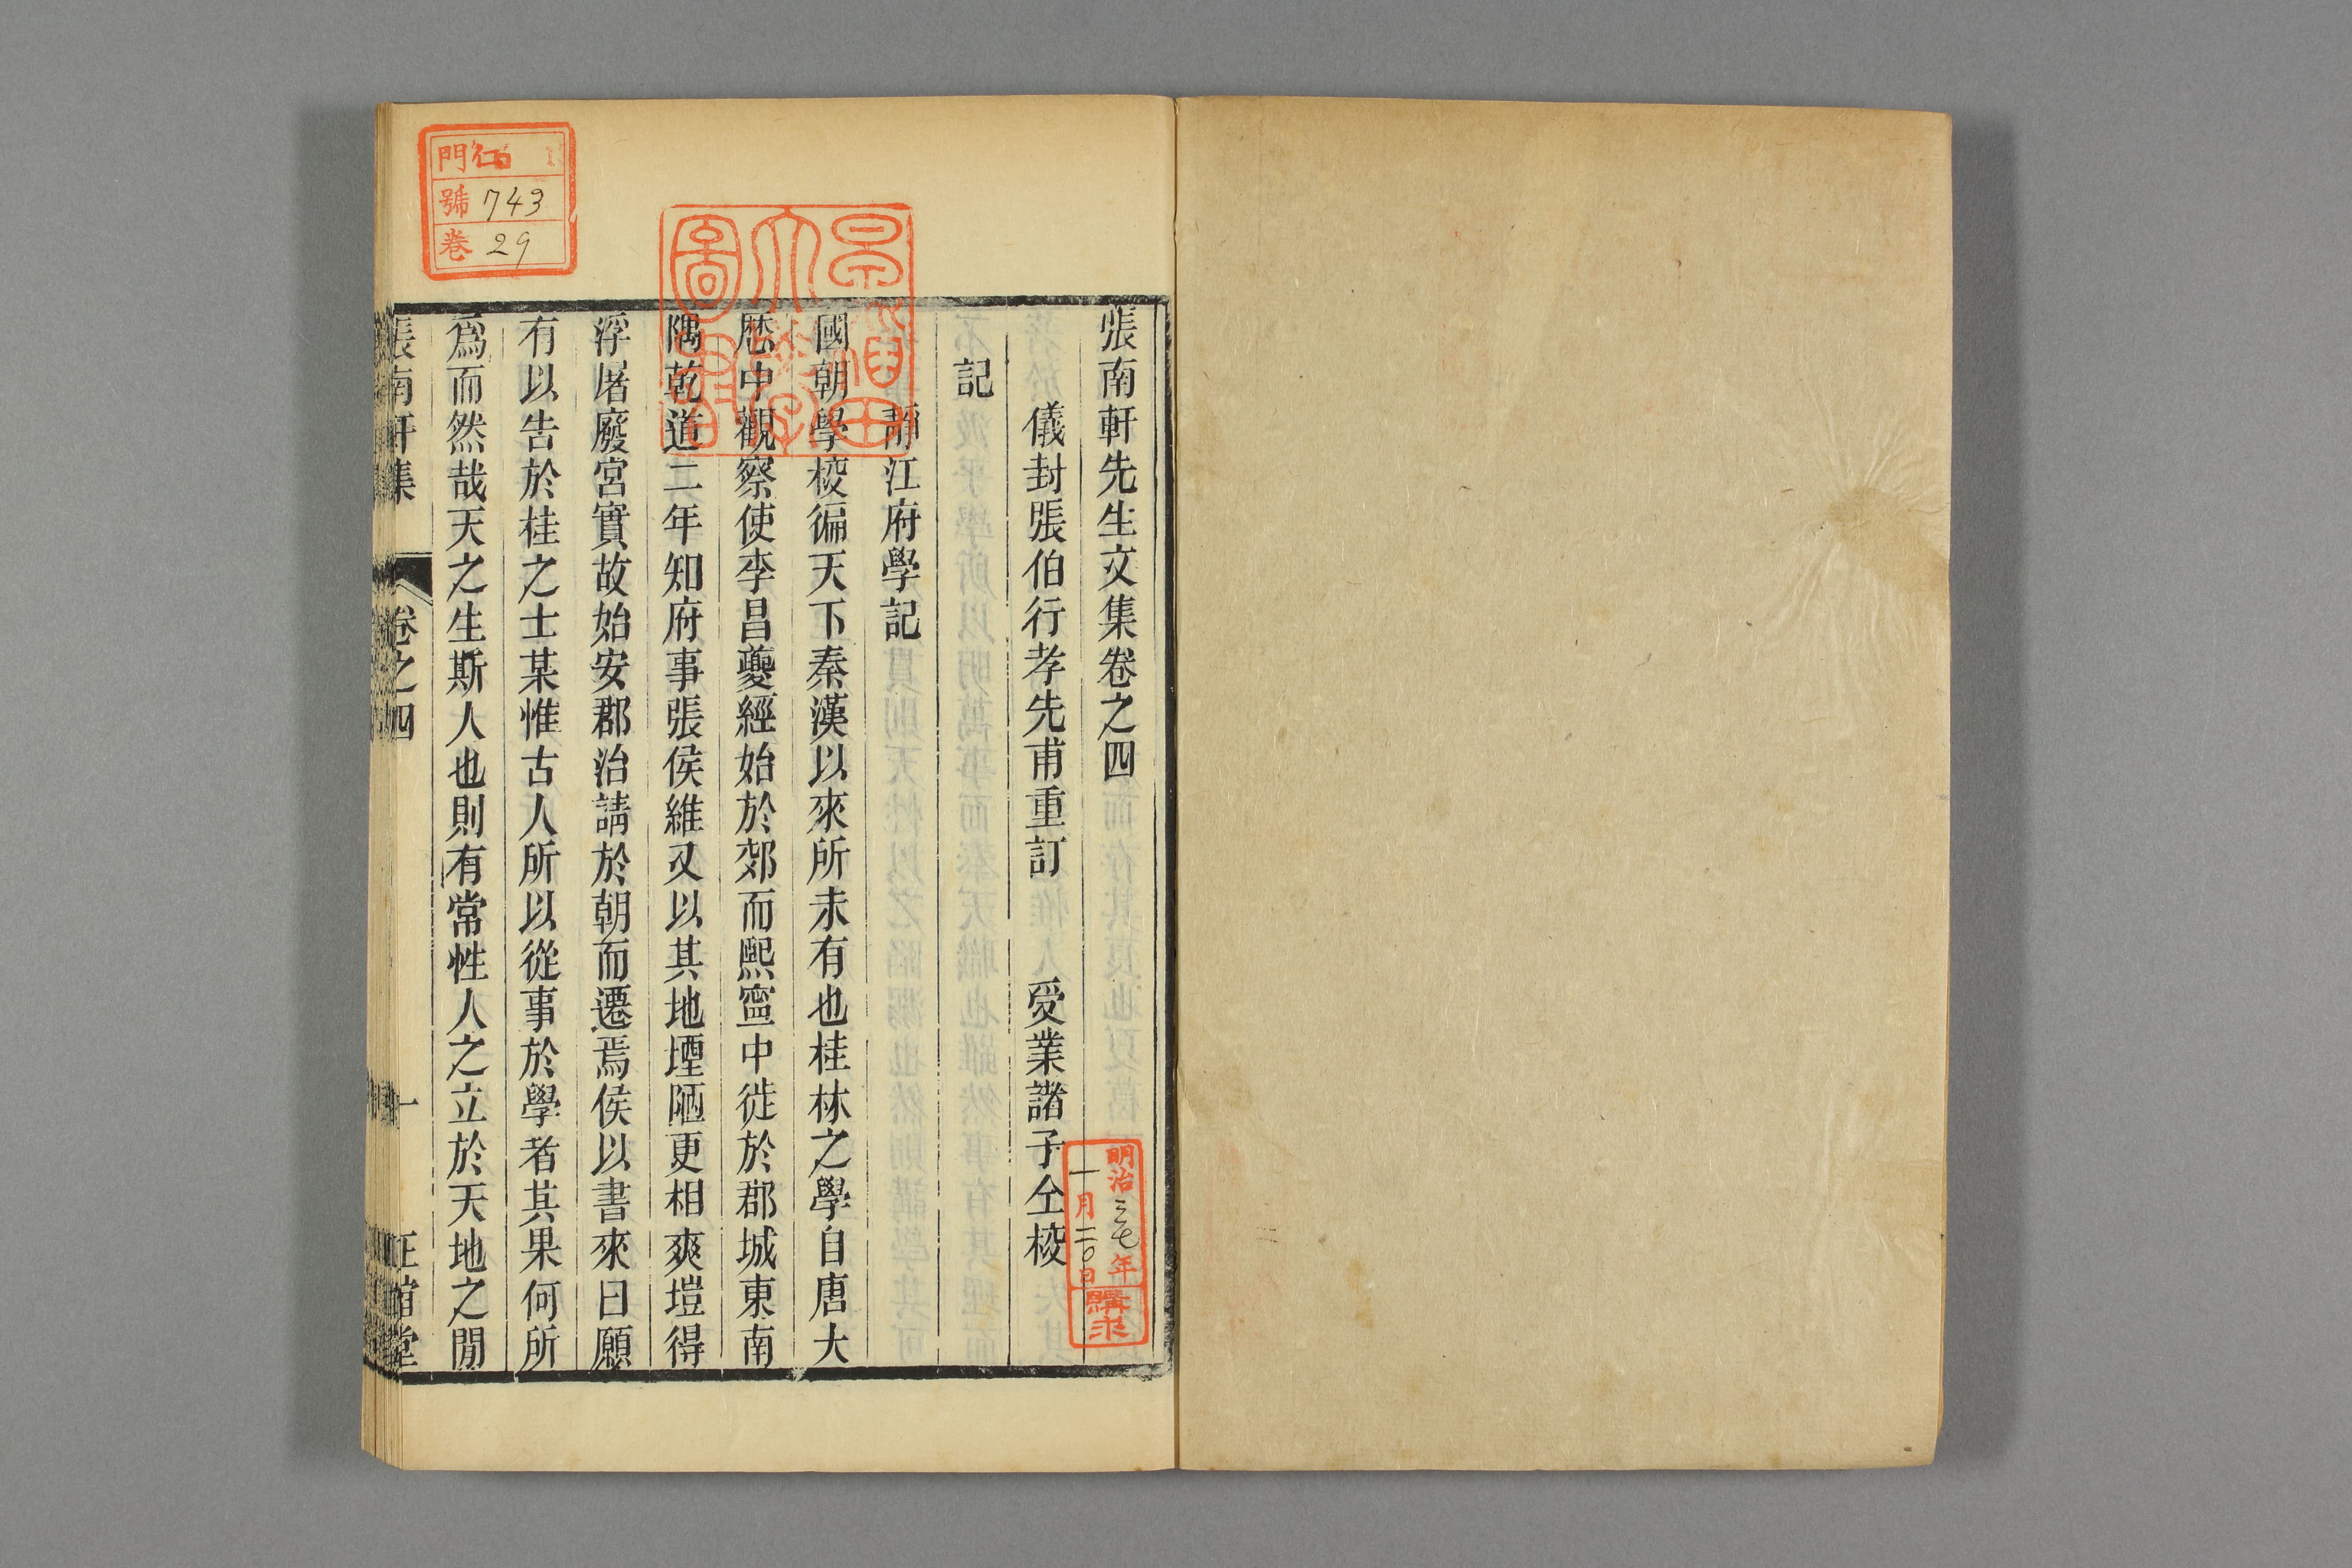 張南軒先生文集卷之四
儀封張伯行孝先甫重訂　受業諸子仝校
記
靜江府學記
國朝學校徧天下秦漢以來所未有也桂林之學自唐大
歷中觀察使李昌夔經始於郊而熙寧中徙於郡城東南
隅乾道二年知府事張侯維又以其地堙陋更相爽塏得
浮屠廢宮實故始安郡治請於朝而遷焉侯以書來曰願
有以告於桂之士某惟古人所以從事於學者其果何所
爲而然哉天之生斯人也則有常性人之立於天地之閒
張南軒集　卷之四　一　正誼堂
門
號 743
卷 29
早稲田大學圖書
明治三七年
一月二〇日
購求